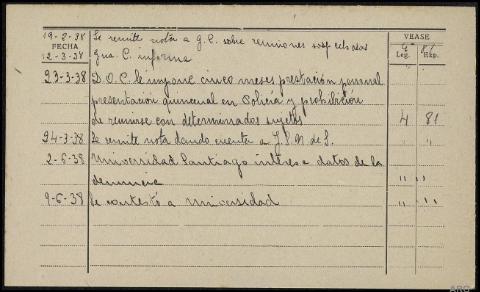 19-2-38 Se remite nota a G.C. sobre reuniones sospechosas
FECHA
VEASE
12-3-38 Gua C. informa
4 81
Leg. Exp.
23-3-38 D.O.C. le impone cinco meses prestación personal
presentación quincenal en Policía y prohibición
de reunirse con determinados sujetos 4 81
24-3-38 Se remite nota dando cuenta a J.S.N. de S. " "
2-6-38 Universidad Santiago interesa datos de la
denuncia " "
9-6-38 Se contestó a Universidad " "
ARG